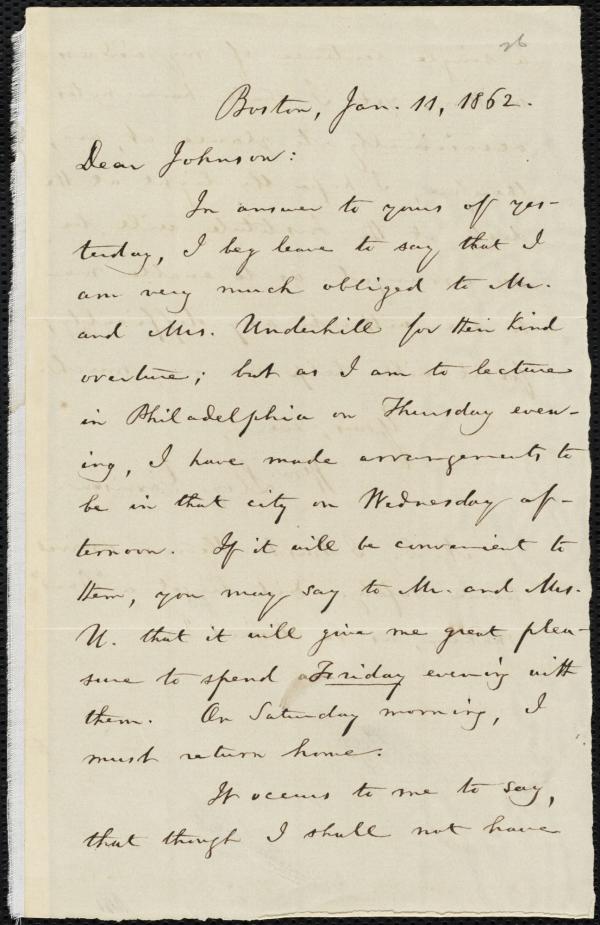 26
Boston, Jan. 11, 1862.
Dear Johnson:
In answer to yours of yes-
terday, I beg leave to say that I
am very much obliged to Mr.
and Mrs. Underhill for their kind
overture; but as I am to lecture
in Philadelphia on Thursday even-
ing, I have made arrangements to
be in that city on Wednesday af-
ternoon. If it will be convenient to
them, you may say to Mr. and Mrs.
U. that it will give me great plea-
sure to spend Friday evening with
them. On Saturday morning, I
must return home.
It occurs to me to say,
that though I shall not have